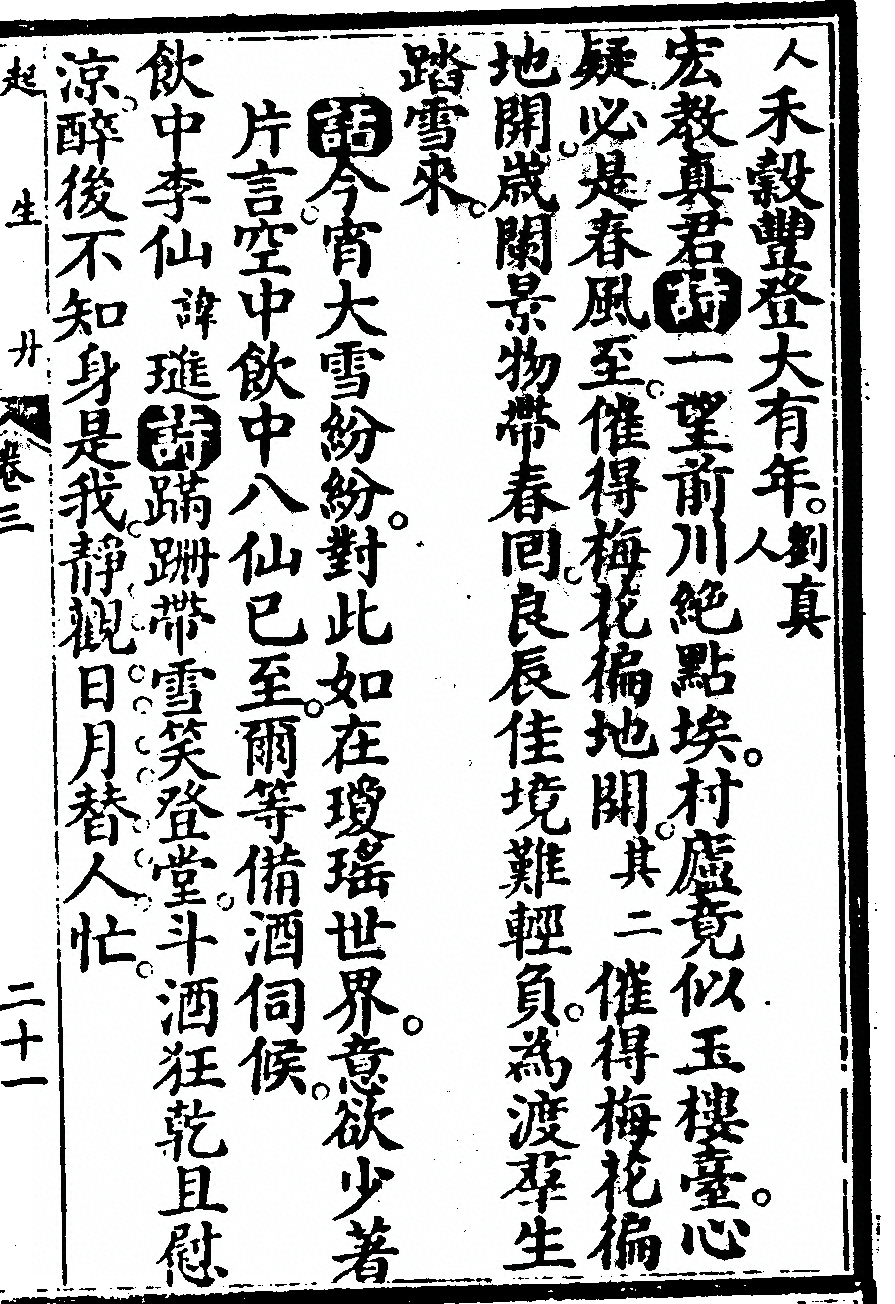 人禾穀豐登大有年。劉真人
宏教真君詩一望前川絶點埃。村廬竟似玉樓臺。心
疑必是春風至。催得梅花徧地開。其二催得梅花徧
地開。歳闌景物帶春囘。良辰佳境難輕負。為渡羣生
踏雪來。
話今宵大雪紛紛。對此如在瓊瑤世界。意欲少著
片言。空中飲中八仙已至。爾等備酒伺候。
飲中李仙諱璡詩蹣跚帶雪笑登堂。斗酒狂乾且慰
涼。醉後不知身是我。靜觀日月替人忙。
起生丹卷三二十一